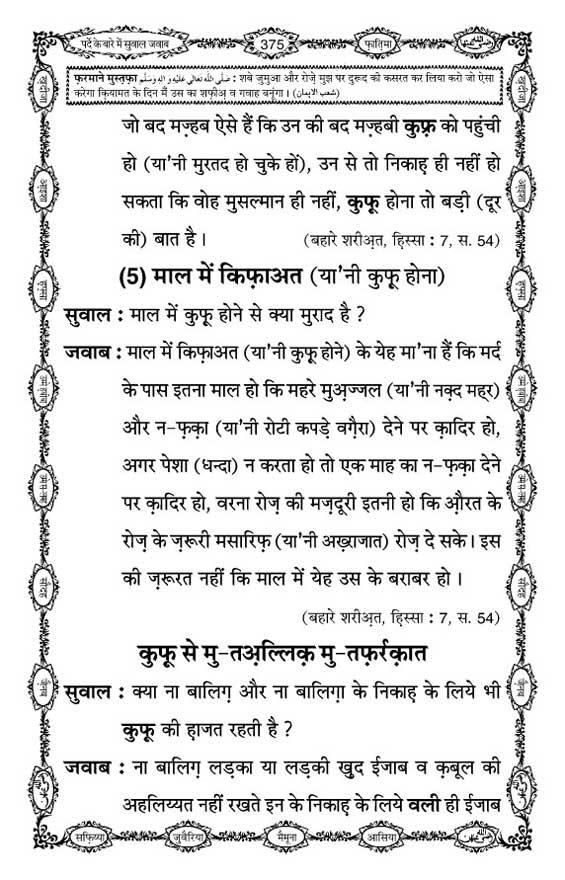 पर्दे के बारे में सुवाल जवाब
375
फ़ातिमा
फ़रमाने मुस्तफ़ा صَلَّى اللهُ تَعَالٰى عَلَيْهِ وَاٰلِهٖ وَسَلَّم : शबे जुमुआ और रोज़े मुझ पर दुरूद की कसरत कर लिया करो जो ऐसा
करेगा क़ियामत के दिन मैं उस का शफ़ीअ़ व गवाह बनूंगा। (شعب الایمان)
जो बद मज़्हब ऐसे हैं कि उन की बद मज़्हबी कुफ़्र को पहुंची
हो (या'नी मुरतद हो चुके हों), उन से तो निकाह ही नहीं हो
सकता कि वोह मुसल्मान ही नहीं, कुफ़ू होना तो बड़ी (दूर
की) बात है। (बहारे शरीअ़त, हिस्सा : 7, स. 54)
(5) माल में किफ़ाअत (या'नी कुफ़ू होना)
सुवाल : माल में कुफ़ू होने से क्या मुराद है ?
जवाब : माल में किफ़ाअत (या'नी कुफ़ू होने) के येह मा'ना हैं कि मर्द
के पास इतना माल हो कि महरे मुअ़ज्जल (या'नी नक़्द महर)
और न-फ़क़ा (या'नी रोटी कपड़े वग़ैरा) देने पर क़ादिर हो,
अगर पेशा (धन्दा) न करता हो तो एक माह का न-फ़क़ा देने
पर क़ादिर हो, वरना रोज़ की मज़दूरी इतनी हो कि औ़रत के
रोज़ के ज़रूरी मसारिफ़ (या'नी अख़्राजात) रोज़ दे सके। इस
की ज़रूरत नहीं कि माल में येह उस के बराबर हो ।
(बहारे शरीअ़त, हिस्सा : 7, स. 54)
कुफ़ू से मु-तअ़ल्लिक़ मु-तफ़र्रक़ात
सुवाल : क्या ना बालिग़ और ना बालिग़ा के निकाह के लिये भी
कुफ़ू की हाजत रहती है ?
जवाब : ना बालिग़ लड़का या लड़की ख़ुद ईजाब व क़बूल की
अहलिय्यत नहीं रखते इन के निकाह के लिये वली ही ईजाब
सफ़िय्या
जुवैरिया
मैमूना
आसिया